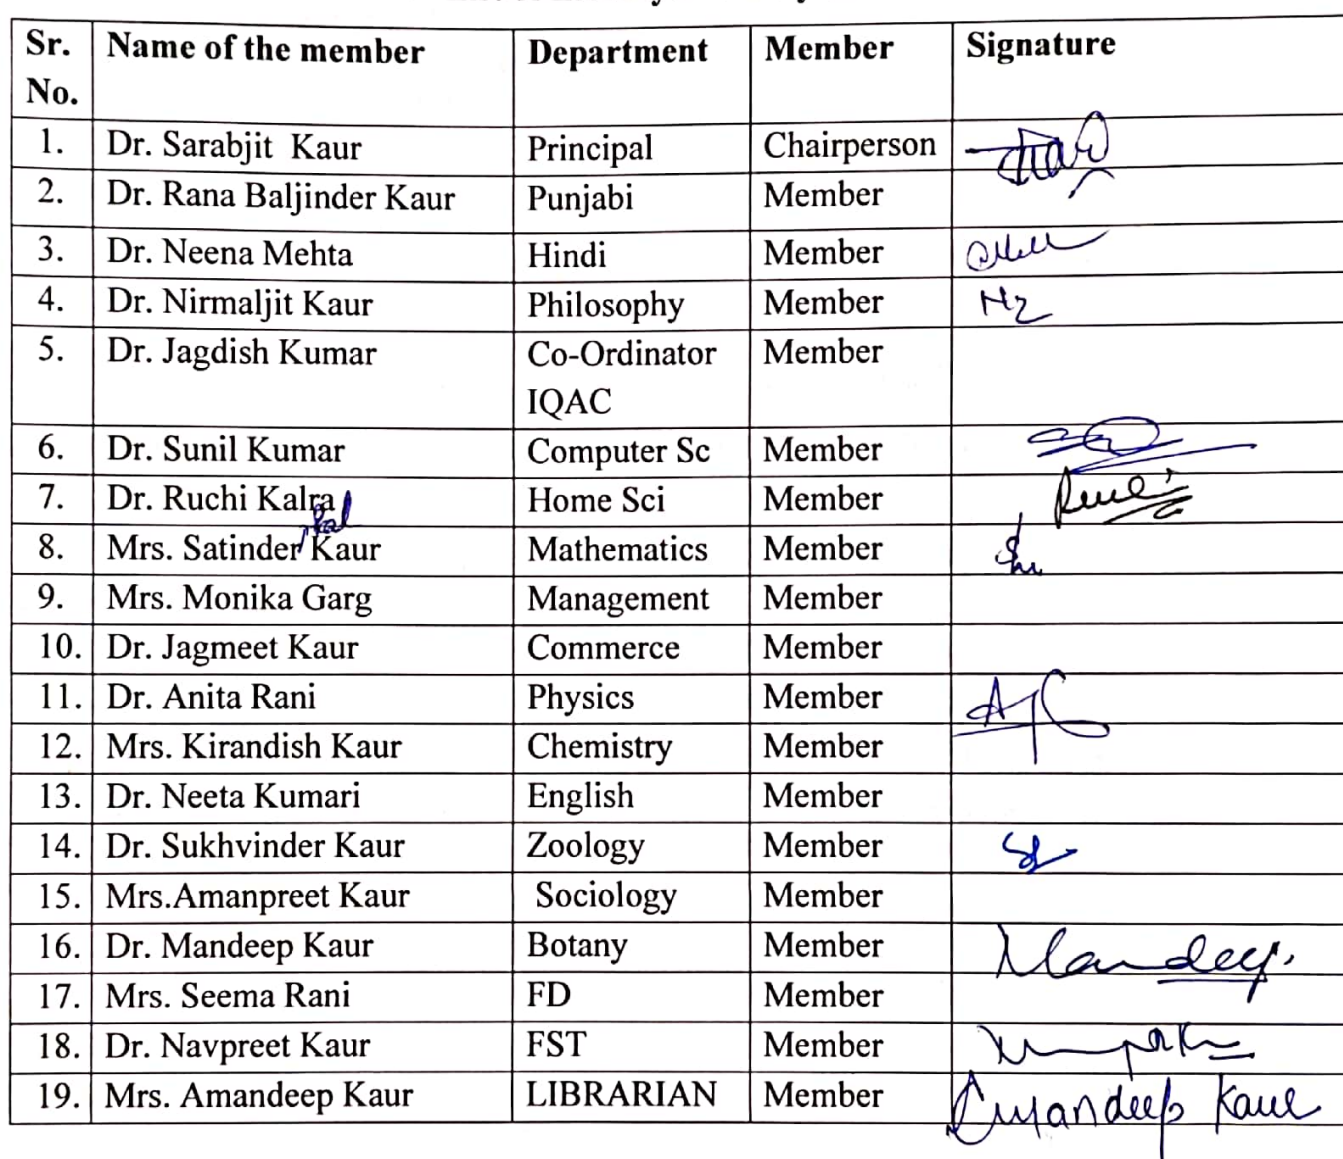 Sr. No. Name of the member Department Member Signature
1. Dr. Sarabjit Kaur Principal Chairperson
2. Dr. Rana Baljinder Kaur Punjabi Member
3. Dr. Neena Mehta Hindi Member
4. Dr. Nirmaljit Kaur Philosophy Member
5. Dr. Jagdish Kumar Co-Ordinator IQAC Member
6. Dr. Sunil Kumar Computer Sc Member
7. Dr. Ruchi Kalra Home Sci Member
8. Mrs. Satinder Pal Kaur Mathematics Member
9. Mrs. Monika Garg Management Member
10. Dr. Jagmeet Kaur Commerce Member
11. Dr. Anita Rani Physics Member
12. Mrs. Kirandish Kaur Chemistry Member
13. Dr. Neeta Kumari English Member
14. Dr. Sukhvinder Kaur Zoology Member
15. Mrs.Amanpreet Kaur Sociology Member
16. Dr. Mandeep Kaur Botany Member Mandeep.
17. Mrs. Seema Rani FD Member
18. Dr. Navpreet Kaur FST Member
19. Mrs. Amandeep Kaur LIBRARIAN Member Amandeep Kaur